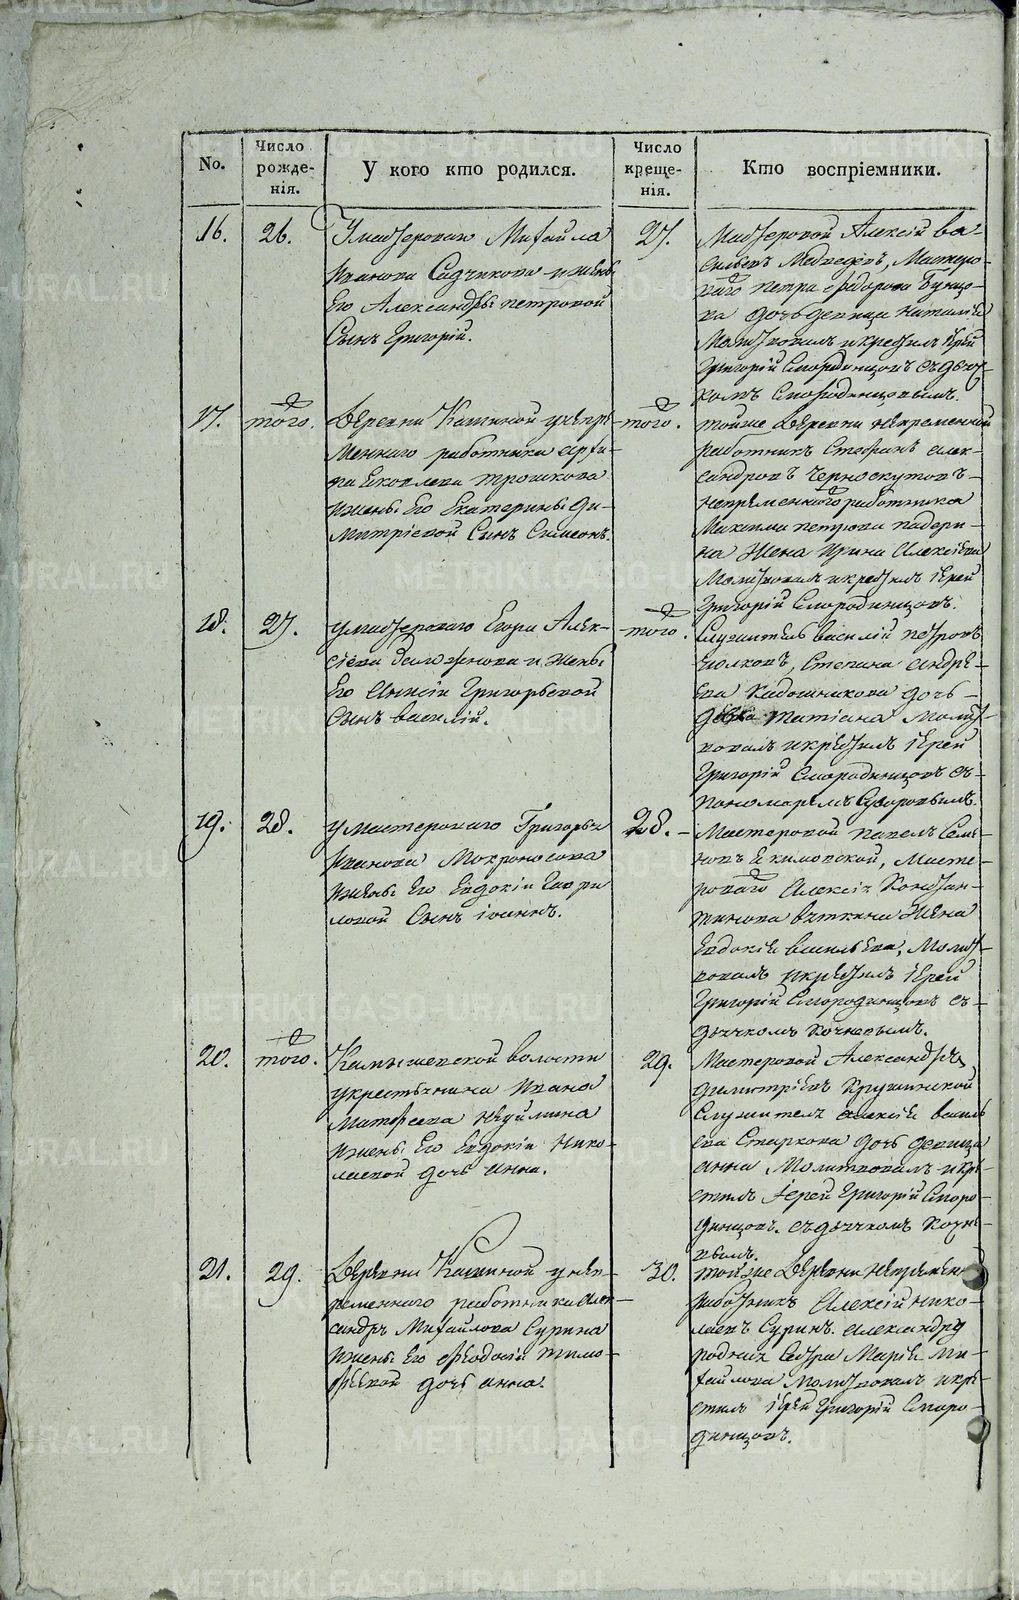 No.
Число рожде-нія.
У кого кто родился.
Число креще-нія.
Кто воспріемники.
16.
26.
Умастероваго Михайла
Иванова Садчикова ижены
Его Александры петровой
Сынъ Григорій.
27.
Мастеровой Алексій ва-
сильевъ Медведевъ, Мастеро-
ваго петра федорова
ва дочь девица наталія
Молитвовалъ икрестилъ Іерей
Григорій Смородинцовъ съдьяч-
комъ Смородинцовымъ.
17.
того.
Деревни Кашиной унепре-
меннаго работника
Яковлева трошкова
ижены Его Екатерины ди-
митріевой Сынъ Симеонъ.
того.
тойже Деревни непременной
работникъ Стефанъ алек-
сандровъ Черноскутовъ
непременнаго работника
Максима петрова падери-
на Жена Ирина Алексіева
Молитвовалъ икрестилъ Іерей
Григорій Смородинцовъ.
18.
27.
умастероваго Егора Алек-
сіева ижены
Его Анисіи Григорьевой
Сынъ василій.
того.
Служитель василій петровъ
Волковъ, Степана андре-
ева Кадошникова дочь
девка татіана Молит-
вовалъ икрестилъ Іерей
Григорій Смородинцовъ съ
пономаремъ Суворовымъ.
19.
28.
умастероваго Григорья
Иванова Мокроносова
ижены Его Евдокіи Гаври
ловой Сынъ іоаннъ.
28.
Мастеровой павелъ Семе-
новъ Екимовской, Масте-
роваго Алексія Констан-
тинова вяткина Жена
Евдокія васильева, Молит-
вовалъ икрестилъ Іерей
Григорій Смородинцовъ съ
дьячкомъ Кочневымъ.
20.
того.
Камышевской волости
укрестьянина Ивана
Матфеева Неуймина
ижены Его Евдокіи Нико-
лаевой дочь анна.
29.
Мастеровой Александръ
димитріевъ Кругшинской
Служителя алексія василь
ева Старкова дочь девица
анна Молитвовалъ икре-
стилъ Іерей Григорій Сморо-
динцовъ. съдьячкомъ Кочне-
вымъ.
21.
29.
Деревни Кашиной унеп-
ременнаго работника Алек-
сандръ Михайлова Сурина
ижены Его феодосіи тимо-
феевой дочь анна.
30.
тойже Деревни непремен
работникъ Алексій нико-
лаевъ Суринъ. александру
родная Сестра Марія Ми-
хайлова Молитвовалъ икре-
стилъ Іерей Григорій Сморо-
динцовъ.
METRIKI.GASO-URAL.RU